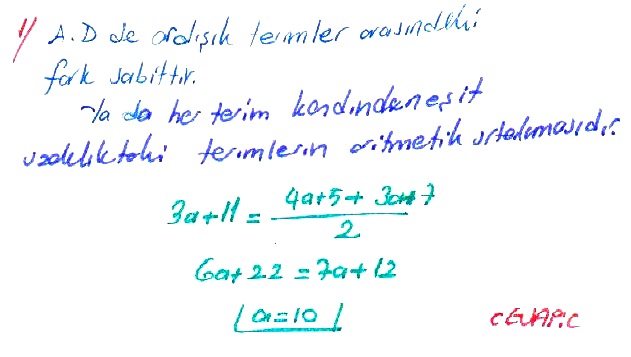 1) A.D de ardışık terimler arasındaki
fark sabittir.
Ya da her terim kendinden eşit
uzaklıktaki terimlerin aritmetik ortalamasıdır.
3a+11 = (4a+5+3a+7)/2
6a+22 = 7a+12
a=10
CEVAP:C